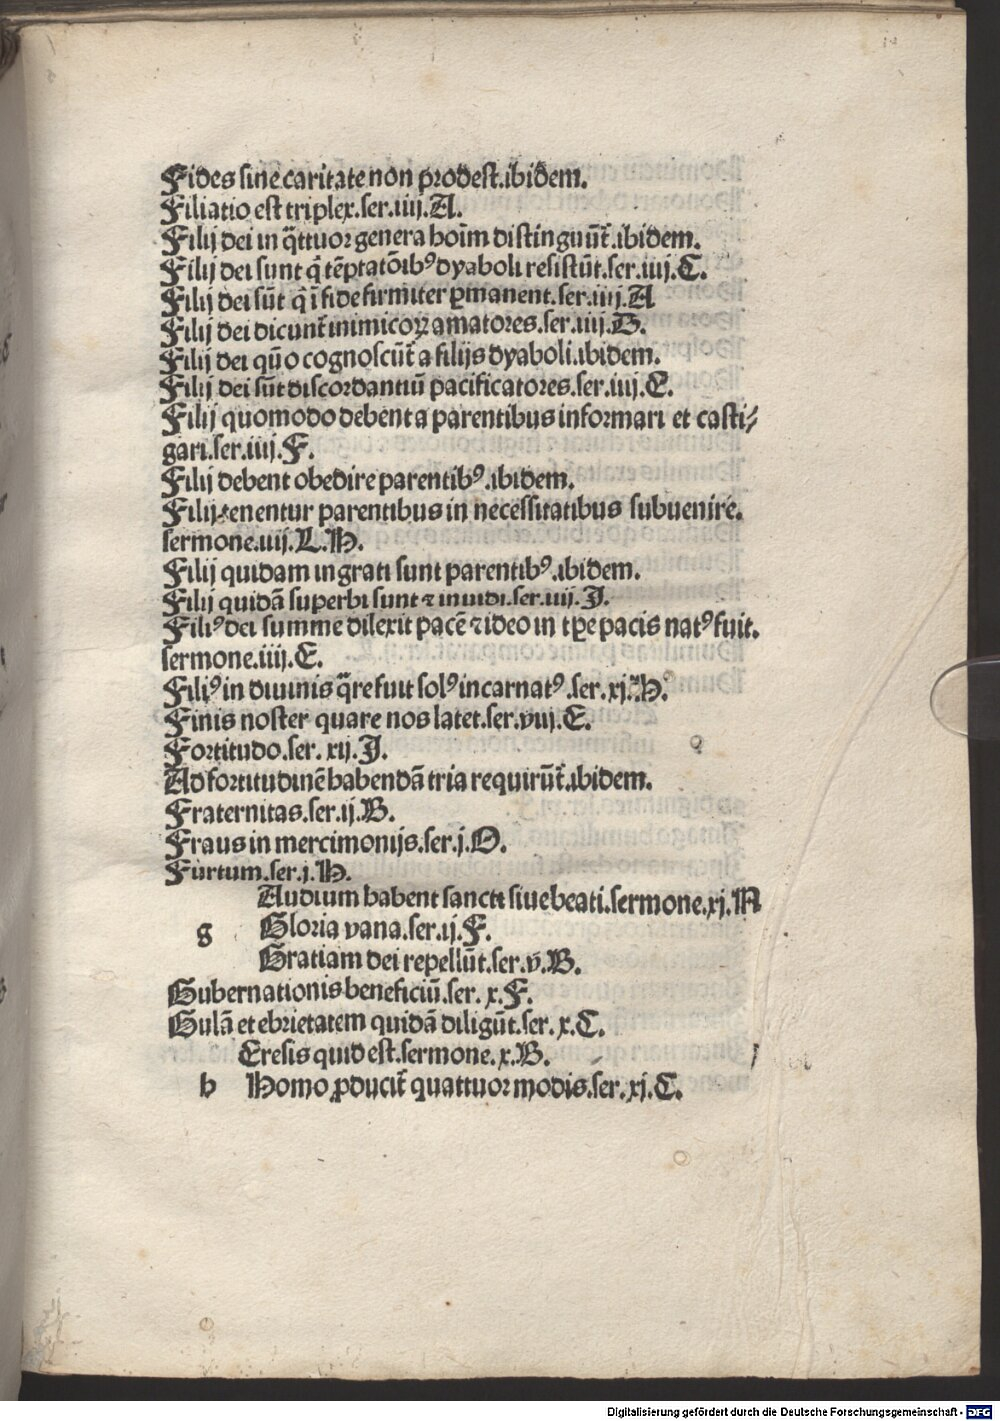 Fides sine caritate non prodest.ibidem.
Filiatio est triplex.ser.iiij.A.
Filij dei in q̄ttuor genera hoīm distinguūt̄.ibidem.
Filij dei sunt q̄ tēptatōibꝰ dyaboli resistūt.ser.iiij.C.
Filij dei sūt q̄ ī fide firmiter ꝑmanent.ser.iiij.A
Filij dei dicunt̄ inimicoꝝ amatores.ser.iiij.B.
Filij dei qūo cognoscūt̄ a filijs dyaboli.ibidem.
Filij dei sūt discordantiū pacificatores.ser.iiij.E.
Filij quomodo debent a parentibus informari et casti⸗
gari.ser.iiij.F.
Filij debent obedire parentibꝰ.ibidem.
Filij tenentur parentibus in necessitatibus subuenire.
sermone.iiij.L.H.
Filij quidam ingrati sunt parentibꝰ.ibidem.
Filij quidā superbi sunt ⁊ inuidi.ser.iiij.J.
Filiꝰ dei summe dilexit pacē ⁊ ideo in tꝑe pacis natꝰ fuit.
sermone.iiij.E.
Filiꝰ in diuinis q̄re fuit solꝰ incarnatꝰ.ser.xj.H.
Finis noster quare nos latet.ser.viij.E.
Fortitudo.ser.xij.J.
Ad fortitudinē habendā tria requirūt̄.ibidem.
Fraternitas.ser.ij.B.
Fraus in mercimonijs.ser.j.O.
Furtum.ser.j.H.
Audium habent sancti siue beati.sermone.xj.M
g Gloria vana.ser.ij.F.
Gratiam dei repellūt.ser.v.B.
Gubernationis beneficiū.ser.x.F.
Gulā et ebrietatem quidā diligūt.ser.x.C.
Eresis quid est.sermone.x.B.
h Homo ꝓducit̄ quattuor modis.ser.xj.C.
Digitalisierung gefördert durch die Deutsche Forschungsgemeinschaft - DFG